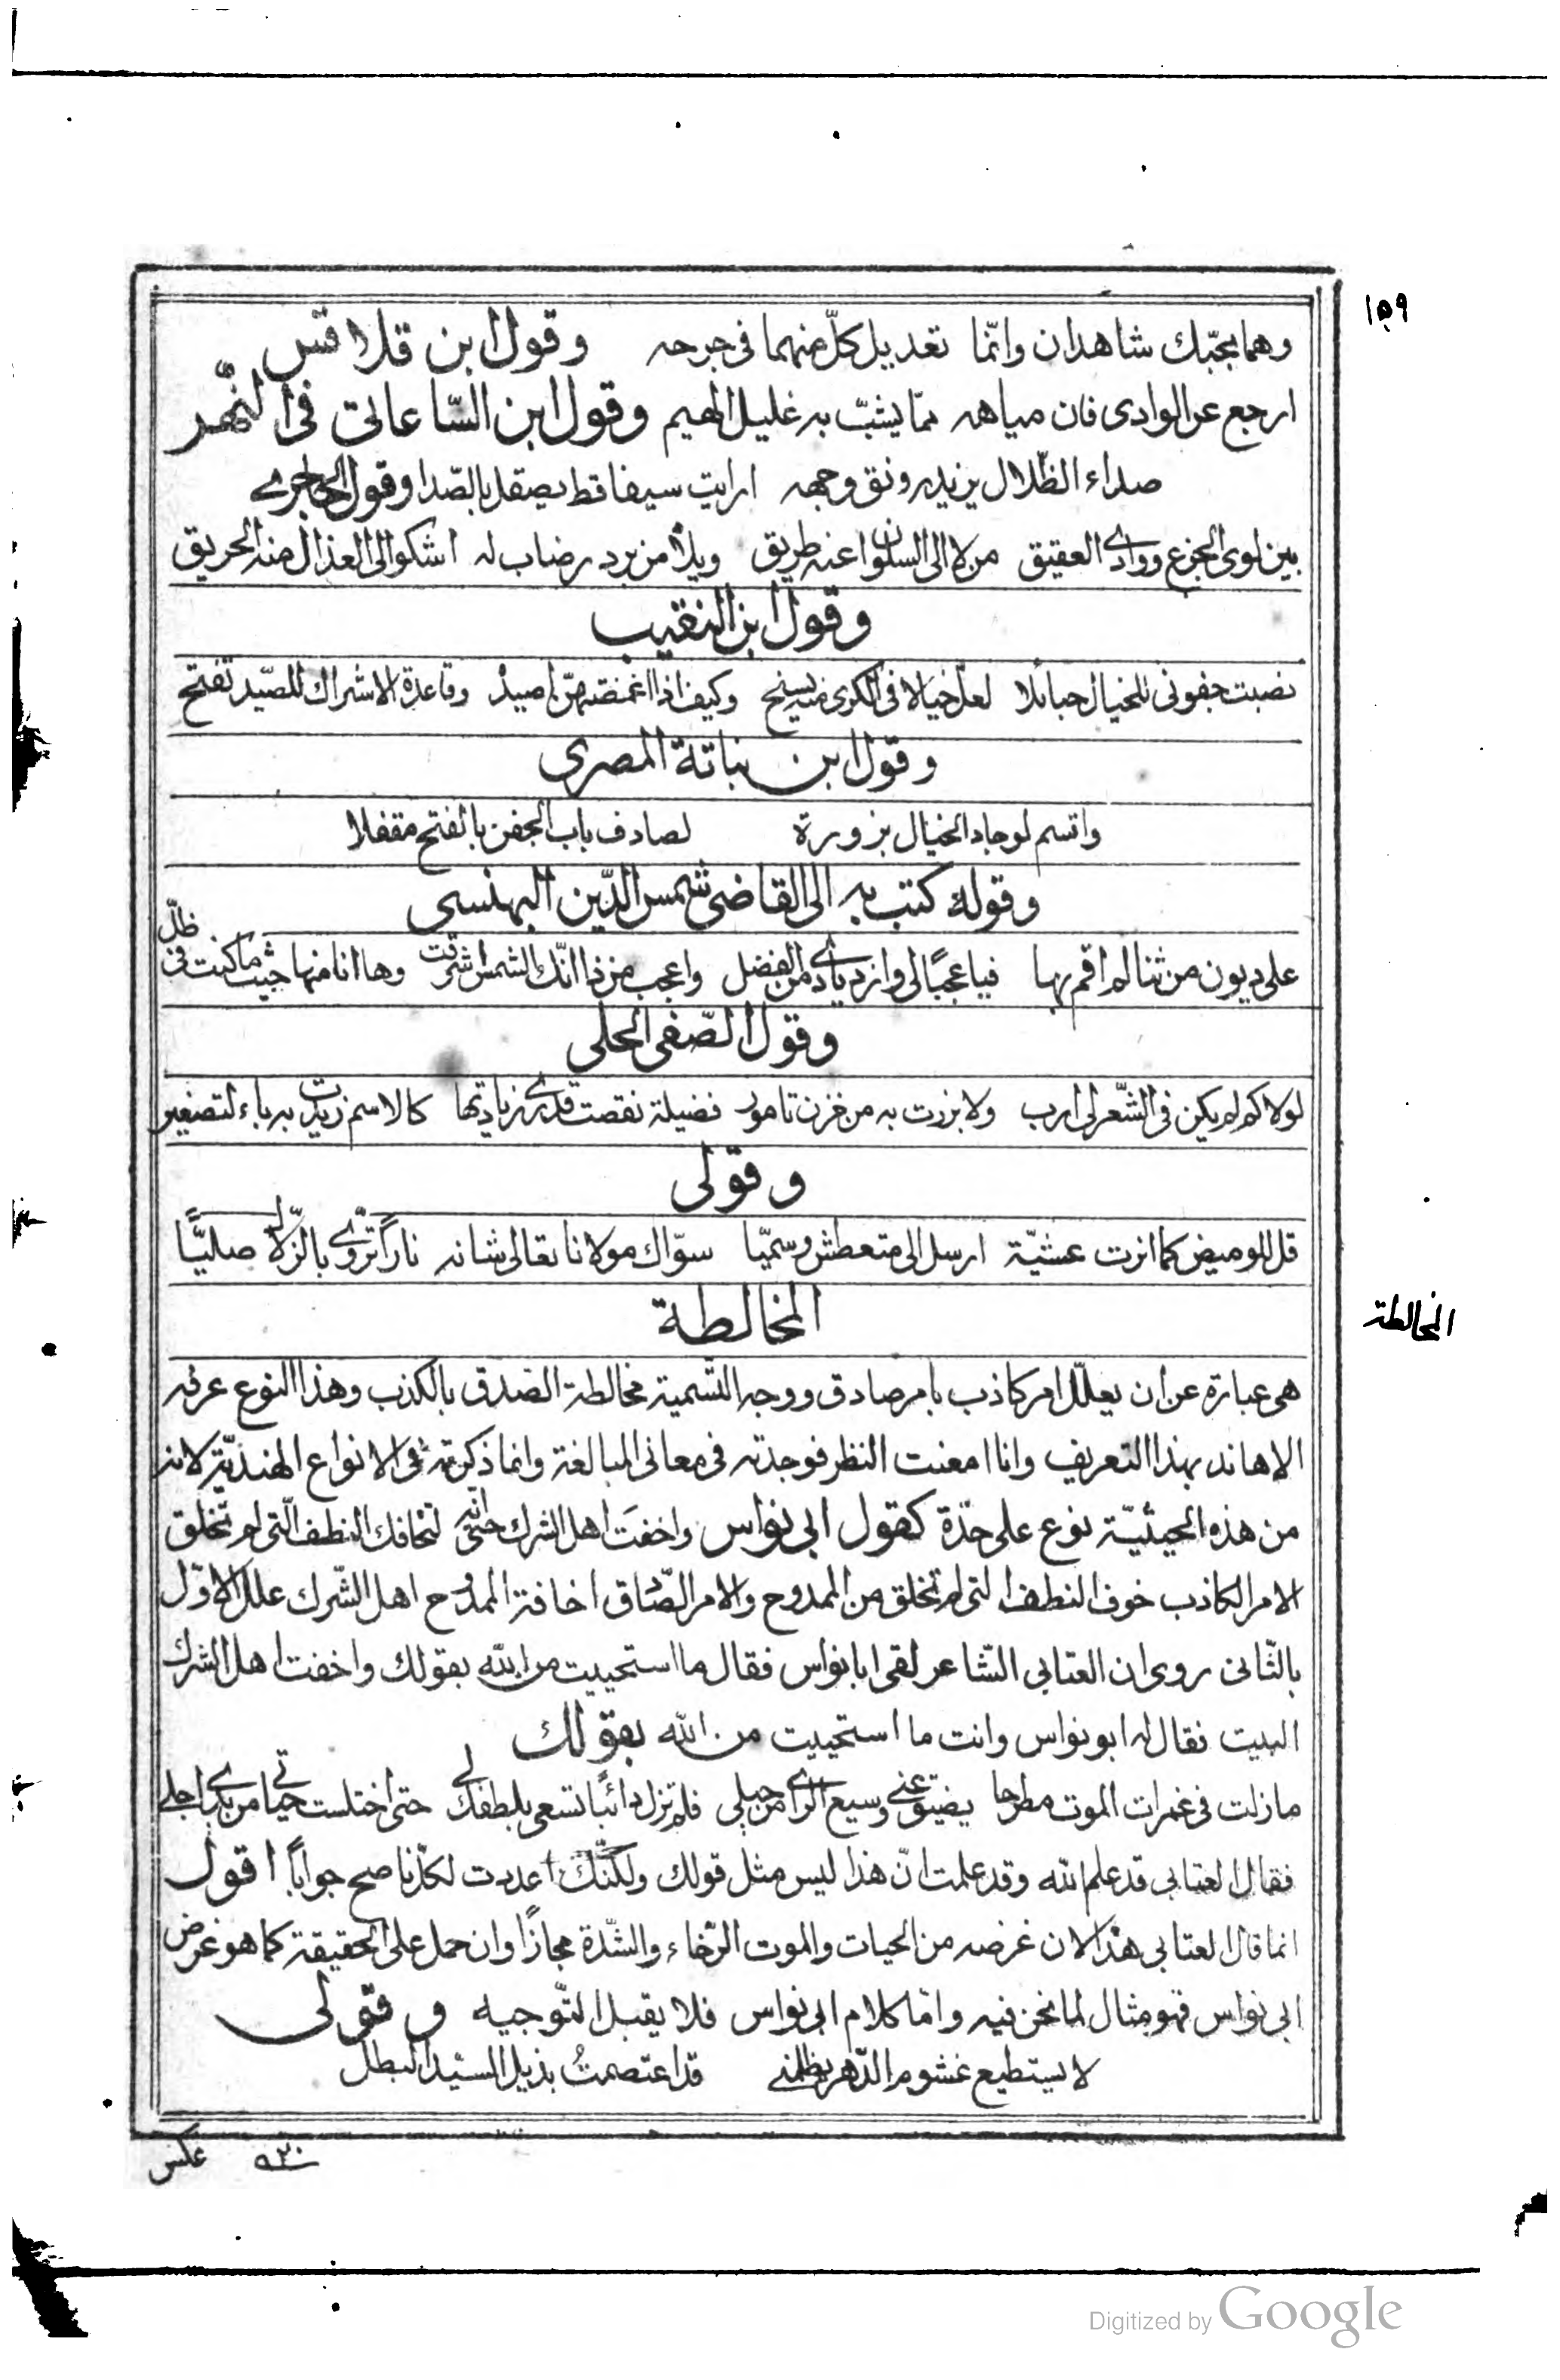 ١٥٩
وهما بحبّك شاهدان وانّما تعديل كلّ منهما فى جرحه وقول ابن قلاقس
ارجع عن الوادى فان مياهه ممّا يشبّ به غليل الهيم وقول ابن السّاعاتى فى النّهر
صداء الظّلال يزيد رونق وجهه ارايت سيفا قط يصقل بالصّدا وقول الحاجرے
بين لوى الجزع ووادے العقيق من لا الى السلوان عنه طريق ويلاً من برد رضاب له اشكوا الى العذال منه الحريق
وقول ابن النقيب
نصبت جفونى للخيال حبائلا لعلّ خيالا فى الكرى منه يسنح وكيف اذا اغمضتهنّ اصيد وقاعدة الاشراك للصّيد تفتح
وقول ابن نباتة المصرى
واقسم لو جاد الخيال بزورة لصادف باب الجفن بالفتح مقفلا
وقوله كتب به الى القاضى شمس الدّين البهنسى
على ديون من ثنا لم اقم بها فيا عجبًا لى وازديادے من الفضل واعجب من ذا انّك الشمس اشرقت وها انا منها حيث ما كنت فى ظلّ
وقول الصّفى الحلى
لولاكم لم يكن فى الشّعر لى ارب ولا بزرت به من خزن تامور فضيلة نقصت قدرے زيادتها كالاسم زيدت به ياء لتصغير
وقولى
قل للوميض كما انرت عشيّة ارسل الى متعطش وسميّا سوّاك مولانا تعالى شانه ناراً تروّے بالزّلال صليًّا
المخالطة
المخالطة
هى عبارة عن ان يعلّل امر كاذب بامر صادق ووجه التّسمية مخالطة الصدق بالكذب وهذا النوع عرفه
الاهاند بهذا التعريف وانا امعنت النظر فوجدته فى معانى المبالغة وانما ذكرته فى الانواع الهنديّة لانه
من هذه الحيثيّة نوع على حدّة كقول ابى نواس واخفت اهل الشرك حتى انه لتخافك النطف الّتى لم تخلق
الامر الكاذب خوف النطف التى لم تخلق من الممدوح والامر الصّادق اخافة الممدوح اهل الشّرك علل الاوّل
بالثّانى روى ان العتابى الشّاعر لقى ابا نواس فقال ما استحييت من الله بقولك واخفت اهل الشرك
البيت فقال له ابو نواس وانت ما استحييت من الله بقولك
ما زلت فى غمرات الموت مطرحا يضيق عنى وسيع الراے من حيلى فلم تزل دائبًا تسعى بلطفك لى حتى اختلست حياتى من يدے اجلے
فقال العتابى قد علم الله وقد علمت انّ هذا ليس مثل قولك ولكنّك اعددت لكلّ ناصح جواباً اقول
انما قال العتابى هذا لان غرضه من الحيات والموت الرّخاء والشّدة مجازًا وان حمل على الحقيقة كما هو غرض
ابى نواس فهو مثال لما نحن فيه وامّا كلام ابى نواس فلا يقبل التّوجيه وقولى
لا يستطيع غشوم الدّهر يظلمنے قد اعتصمتُ بذيل السيّد البطل
عكس
Digitized by Google